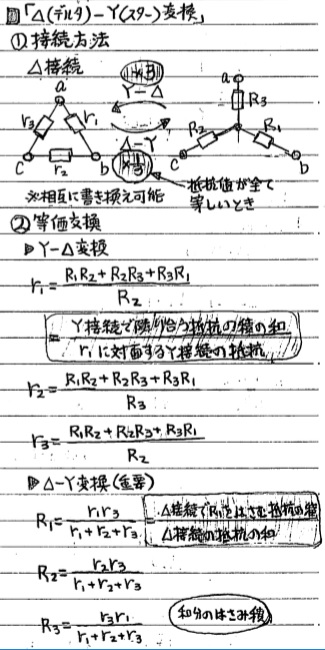 「△(デルタ)-Y(スター)変換」
①接続方法
△接続
a
r3 r1
c r2 b
×3
Y-△
△-Y
÷3
a
R3
R2 R1
c b
※相互に書き換え可能
抵抗値が全て
等しいとき
②等価変換
▷Y-△変換
r1=(R1R2+R2R3+R3R1)/R2
=Y接続で隣り合う抵抗の積の和/r1に対面するY接続の抵抗
r2=(R1R2+R2R3+R3R1)/R3
r3=(R1R2+R2R3+R3R1)/R2
▷△-Y変換(重要)
R1=r1r3/(r1+r2+r3)=△接続でR1をはさむ抵抗の積/△接続の抵抗の和
R2=r2r3/(r1+r2+r3)
R3=r3r1/(r1+r2+r3)
和分のはさみ積